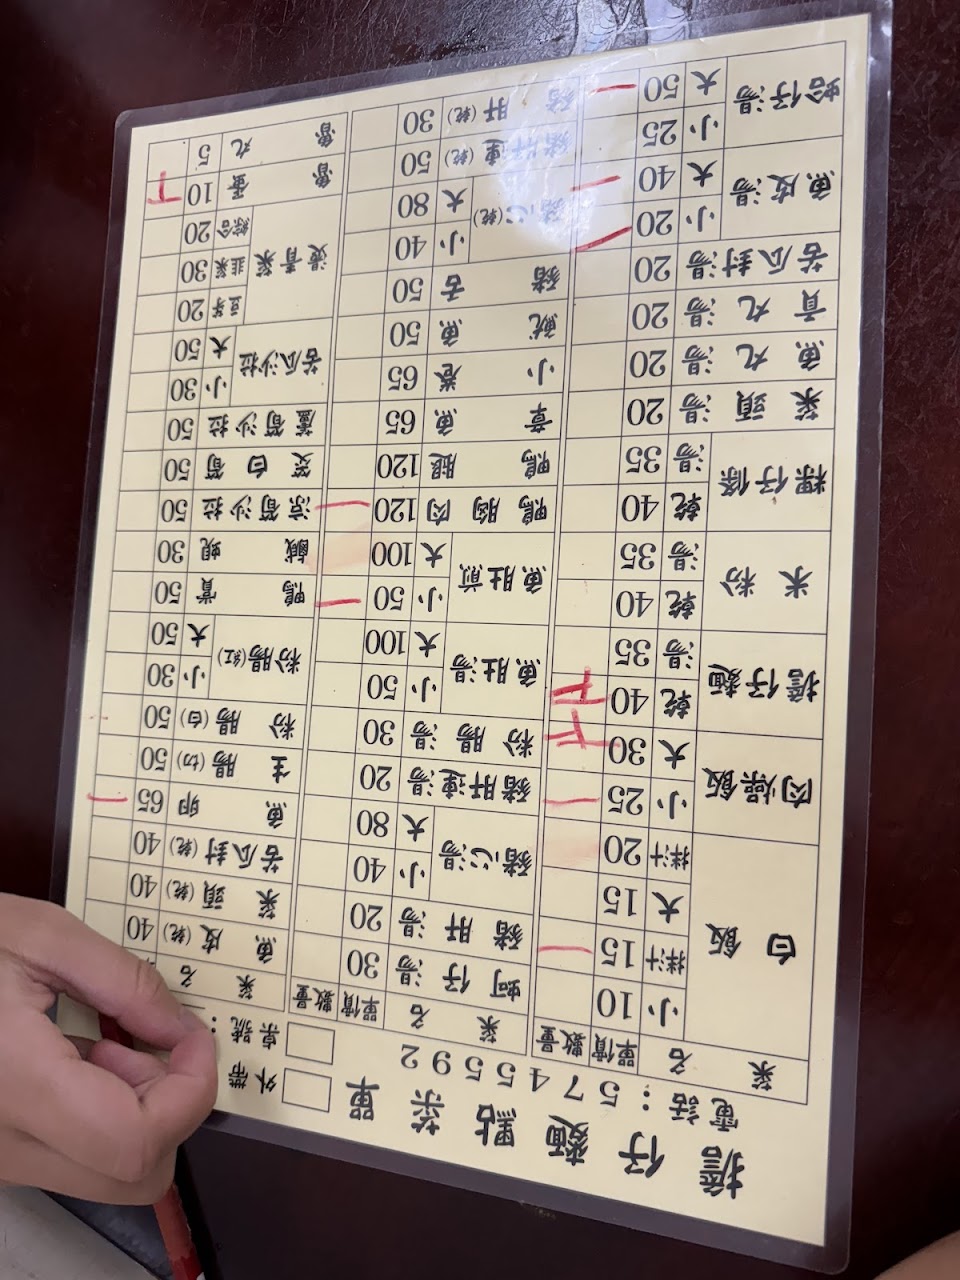 擔仔麵點菜單
電話：5745592
外帶
桌號：
菜名 單價 數量
白飯 小 10
拌汁 15
大 15
拌汁 20
肉燥飯 小 25
大 30
擔仔麵 乾 40
湯 35
米粉 乾 40
湯 35
粿仔條 乾 40
湯 35
菜頭湯 20
魚丸湯 20
貢丸湯 20
苦瓜封湯 20
魚皮湯 小 20
大 40
蛤仔湯 小 25
大 50
菜名 單價 數量
蚵仔湯 30
豬肝湯 20
豬心湯 小 40
大 80
豬肝連湯 20
粉腸湯 30
魚肚湯 小 50
大 100
魚肚煎 小 50
大 100
鴨胸肉 120
鴨腿 120
章魚 65
小卷 65
魷魚 50
豬舌 50
豬心(乾) 小 40
大 80
豬肝連(乾) 50
豬肝(乾) 30
菜名
魚皮(乾) 40
菜頭(乾) 40
苦瓜封(乾) 40
魚卵 65
生腸(切) 50
粉腸(白) 50
粉腸(紅) 小 30
大 50
鴨賞 50
鹹蜆 30
涼筍沙拉 50
筊白筍 50
蘆筍沙拉 50
苦瓜沙拉 小 30
大 50
燙青菜 豆芽 20
韭菜 30
綜合 20
魯蛋 10
魯丸 5